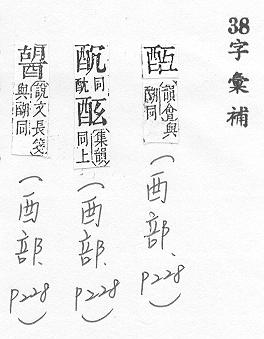 38 字彙補
韻會與醐同 (酉部、P228)
同酖 集韻同上 (酉部、P228)
說文長箋與醐同 (酉部、P228)